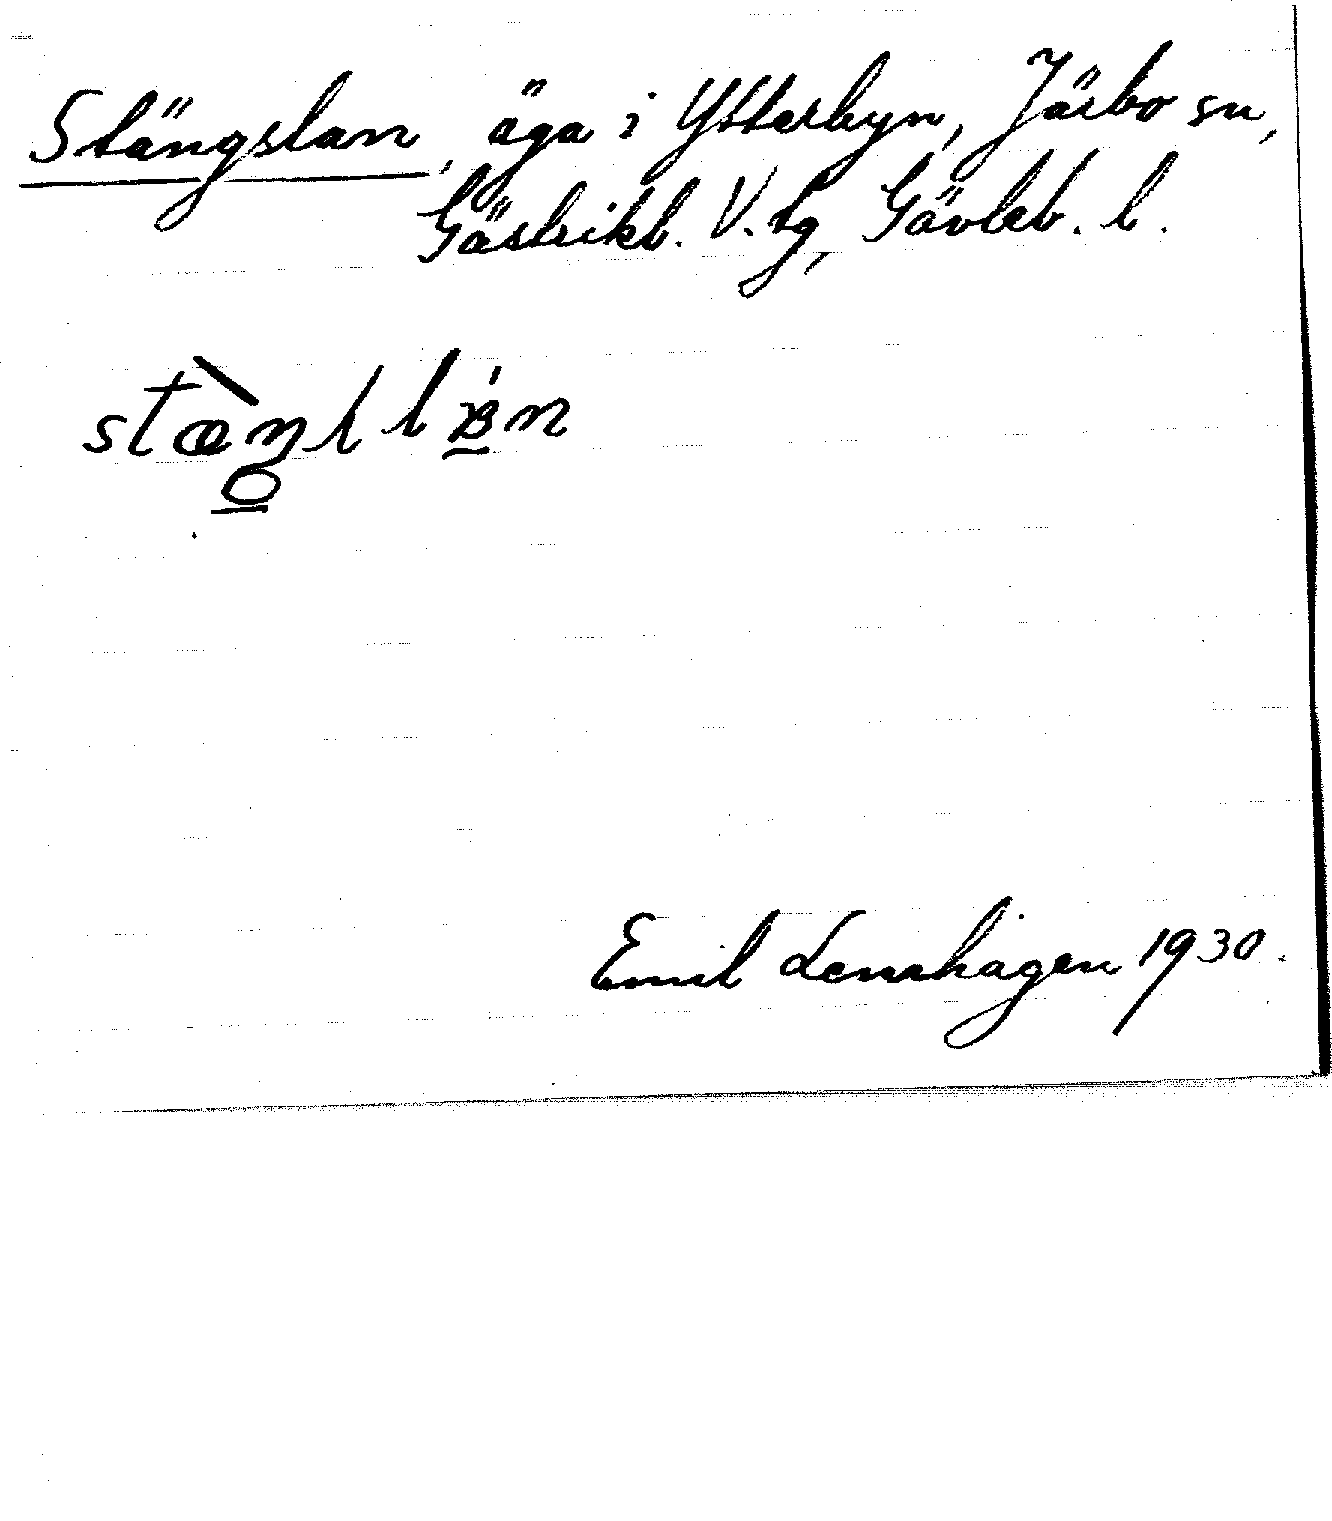 Stängslan, äga i Ytterbyn, Järbo sn,
Gästrikl. V. tg, Gävleb. l.
Emil Lennhagen 1930.